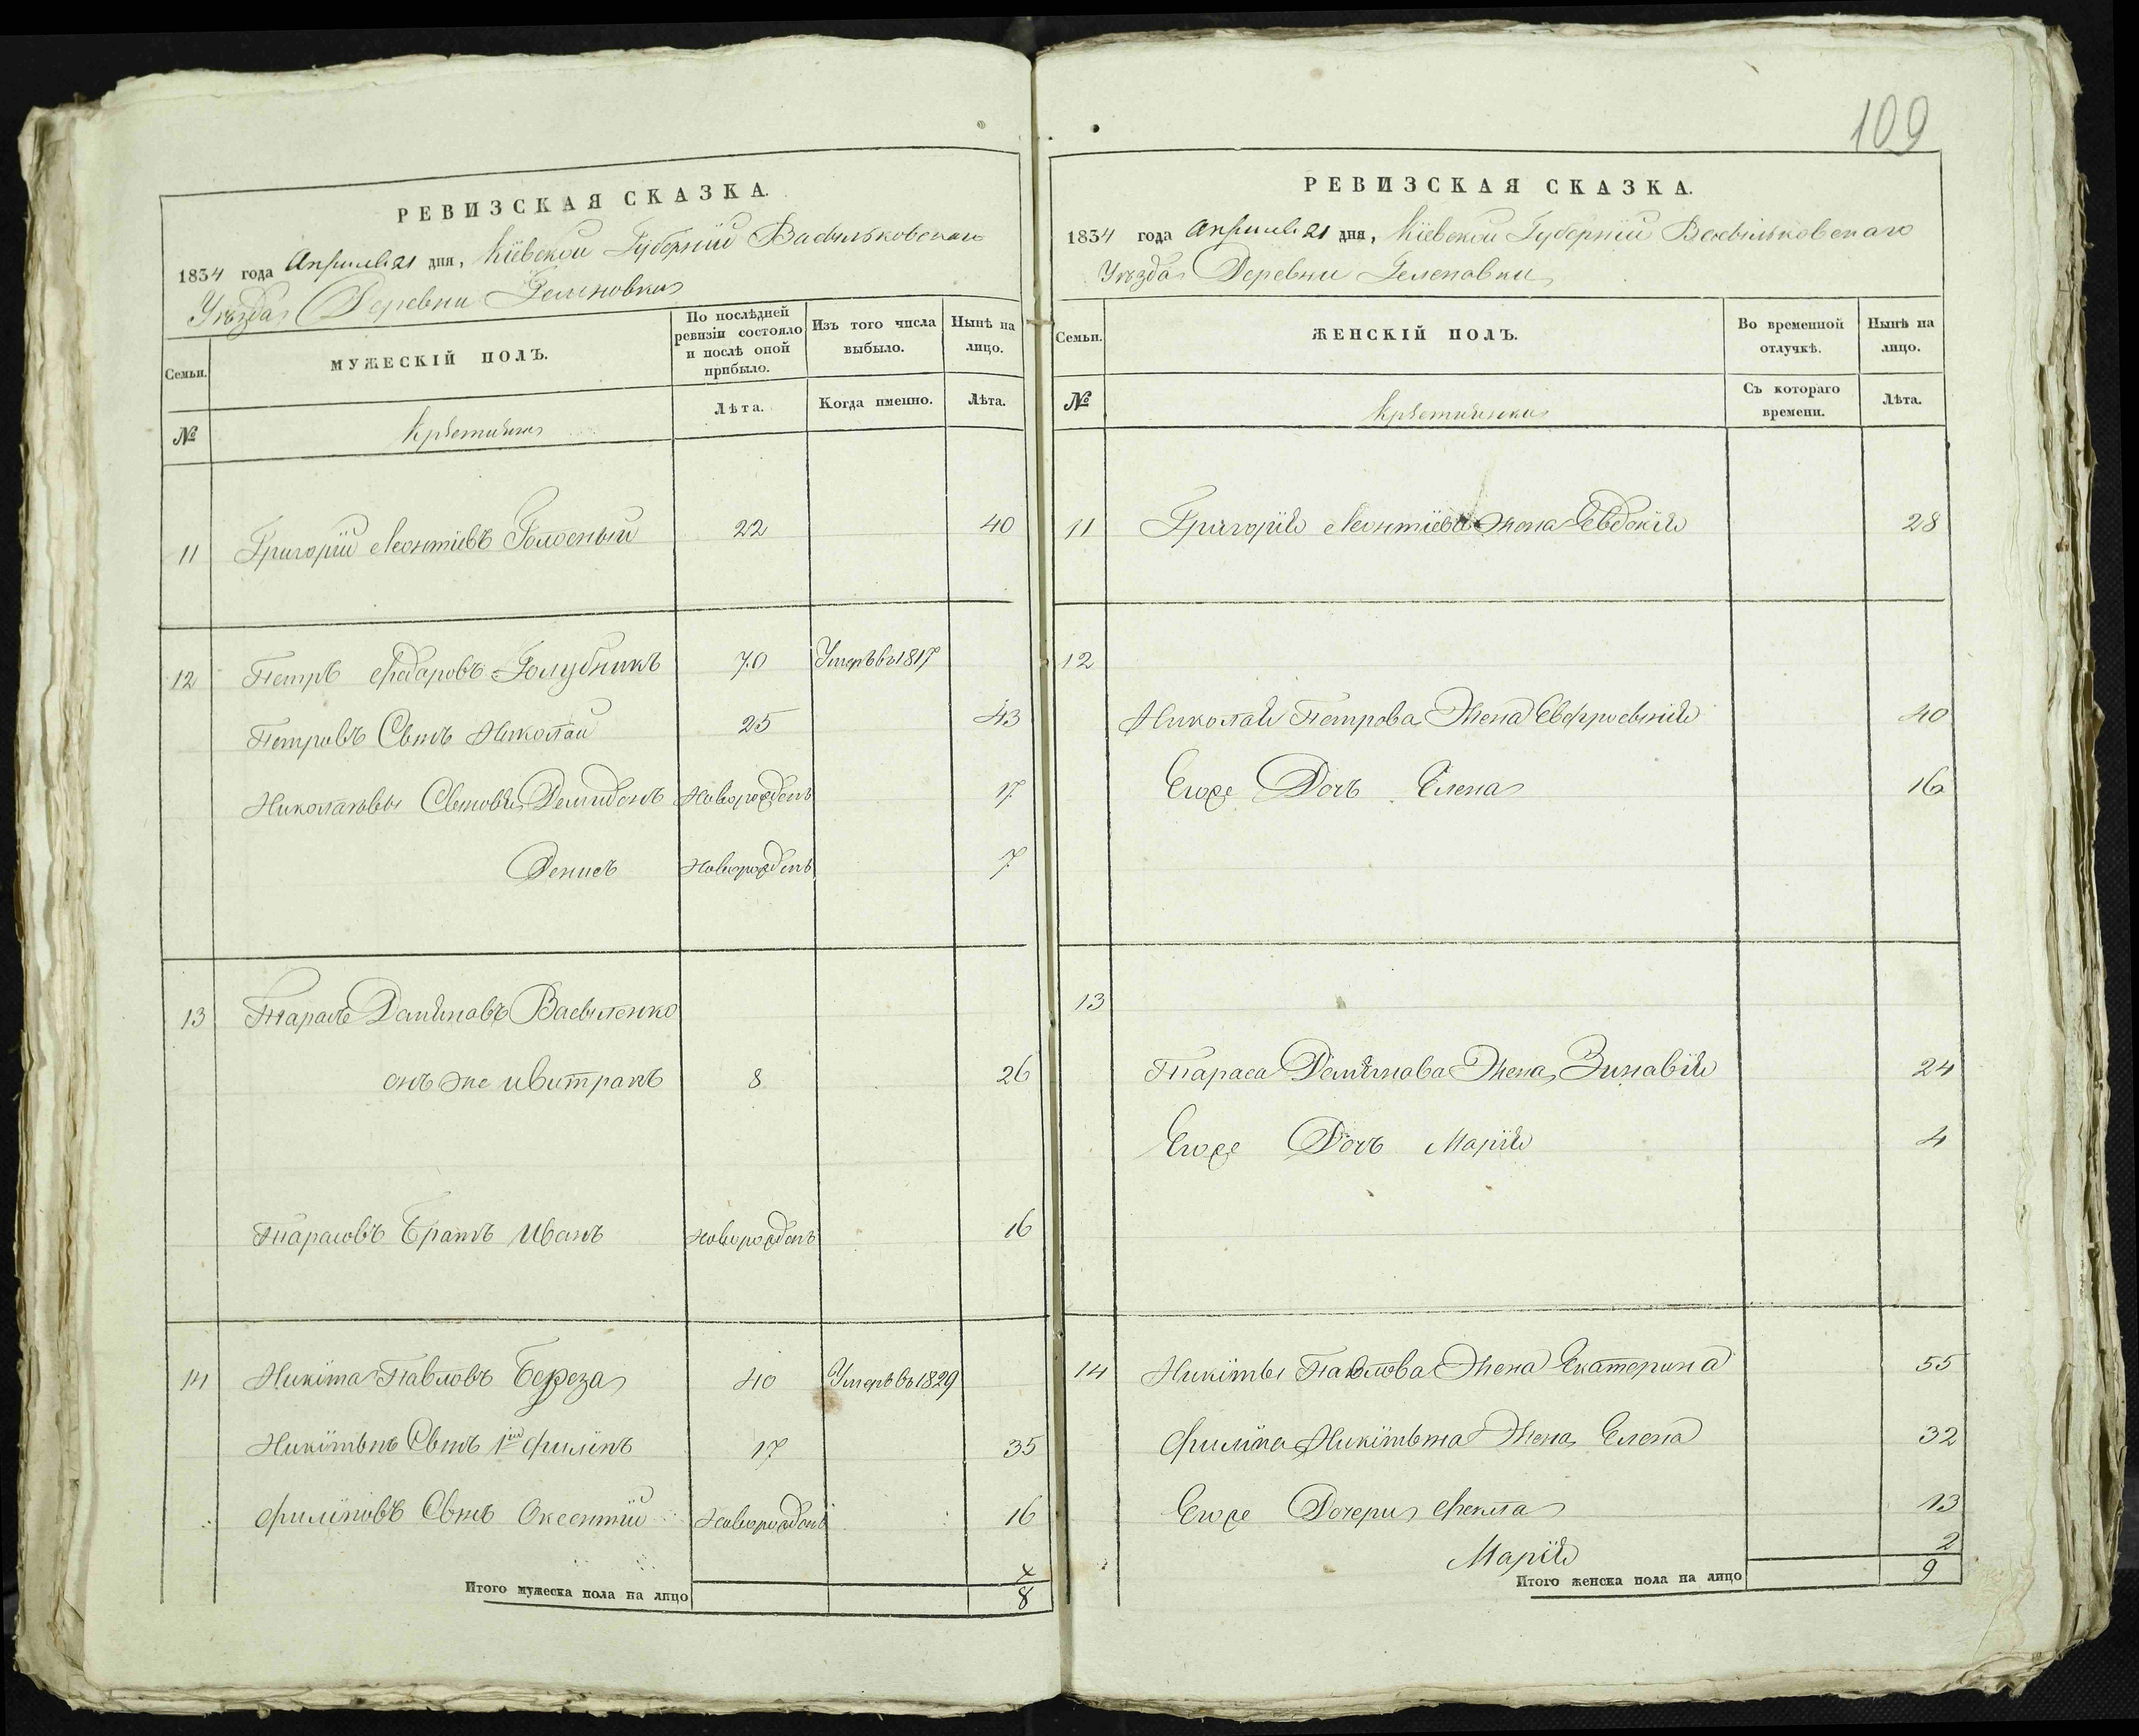 109
РЕВИЗСКАЯ СКАЗКА.
1834 года Апрыля 21 дня, Кіевской Губерніи Васыльковскаго
Уѣзда Деревни Гелиновки
Семьи. МУЖЕСКІЙ ПОЛЪ. По послѣдней ревизіи состояло и послѣ оной прибыло. Изъ того числа выбыло. Нынѣ на лицо.
№ Лѣта. Когда именно. Лѣта.
11 Григорій Леонтіевъ 22 40
12 Петръ Федаровъ Голубникъ 70 Умеръ въ 1817
Петровъ Сынъ Николай 25 43
Николаевы Сыновья Демидонъ Новорожденъ 17
Денисъ Новорожденъ 7
13 Тарасъ Демяновъ Васыленко
онъ же Ивитранъ 8 26
Тарасовъ Братъ Иванъ Новорожденъ 16
14 Никіта Павловъ Береза 40 Умеръ въ 1829
Никітынъ Сынъ 1й Филіпъ 17 35
Филіповъ Сынъ Оксентій Новорожденъ 16
Итого мужеска пола на лицо 8
РЕВИЗСКАЯ СКАЗКА.
1834 года Апрыля 21 дня, Кіевской Губерніи Васыльковскаго
Уѣзда Деревни Геленовки
Семьи. ЖЕНСКІЙ ПОЛЪ. Во временной отлучкѣ. Нынѣ на лицо.
№ Съ котораго времени. Лѣта.
11 Григорія Леонтіева Жена Евдокія 28
12
Николая Петрова Жена Евфросынія 40
Егоже Дочь Елена 16
13
Тараса Демянова Жена Зинавія 24
Егоже Дочь Марія 4
14 Никіты Павлова Жена Екатерина 55
Филіпа Никітына Жена Елена 32
Егоже Дочери Фекла 13
Марія 2
Итого женска пола на лицо 9